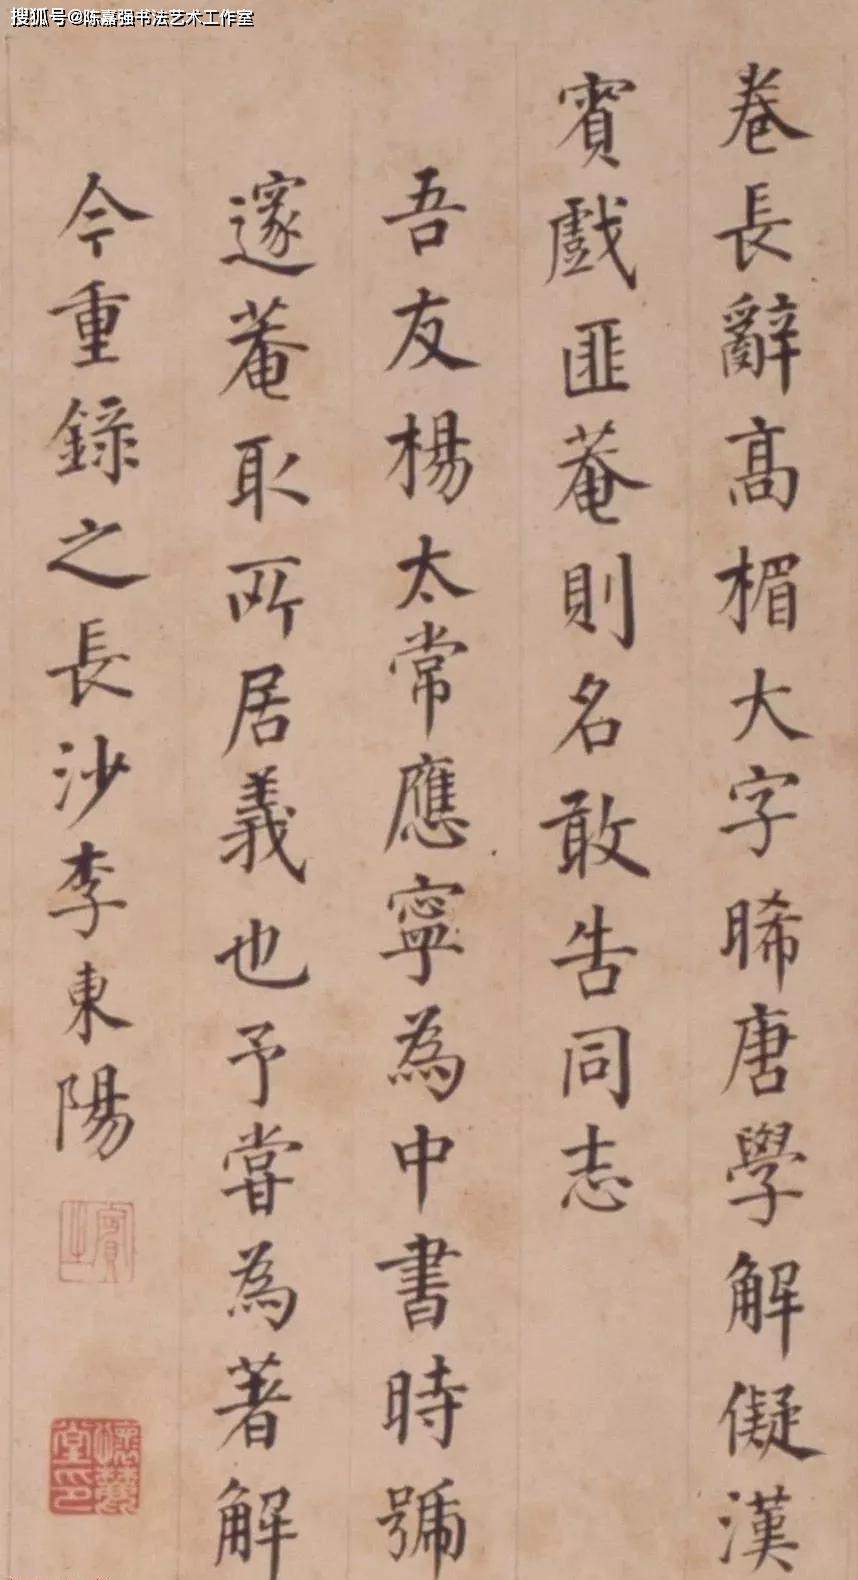 搜狐号@陈嘉强书法艺术工作室
卷長辭高楣大字睎唐學解儗漢
賓戲匪菴則名敢告同志
吾友楊太常應寧為中書時號
邃菴取所居義也予嘗為著解
今重錄之長沙李東陽
賓之
懷麓堂印